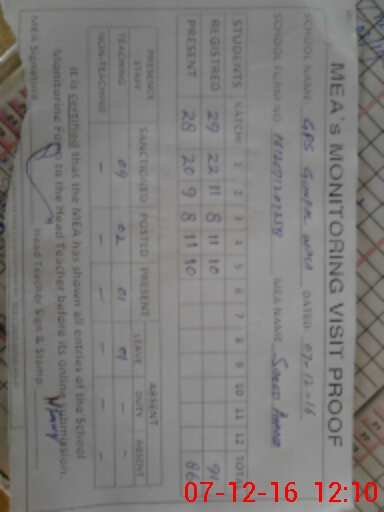 MEA's MONITORING VISIT PROOF
SCHOOL NAME: GPS DATED: 07-12-16
SCHOOL FORM NO MEA NAME: SAEED
STUDENTS KATCHI 1 2 3 4 5 6 7 8 9 10 11 12 TOTAL
REGISTRED 29 22 11 8 11 10 91
PRESENT 28 20 9 8 11 10 86
PRESENCE SANCTIONED POSTED PRESENT ABSENT
STAFF LEAVE DUTY ABSENT
TEACHING 04 02 01 01 - -
NON-TEACHING - - - - - -
It is certified that the MEA has shown all entries of the School
Monitoring Form to the Head Teacher before its online submission.
MEA Signature Head Teacher Sign & Stamp
07-12-16 12:10